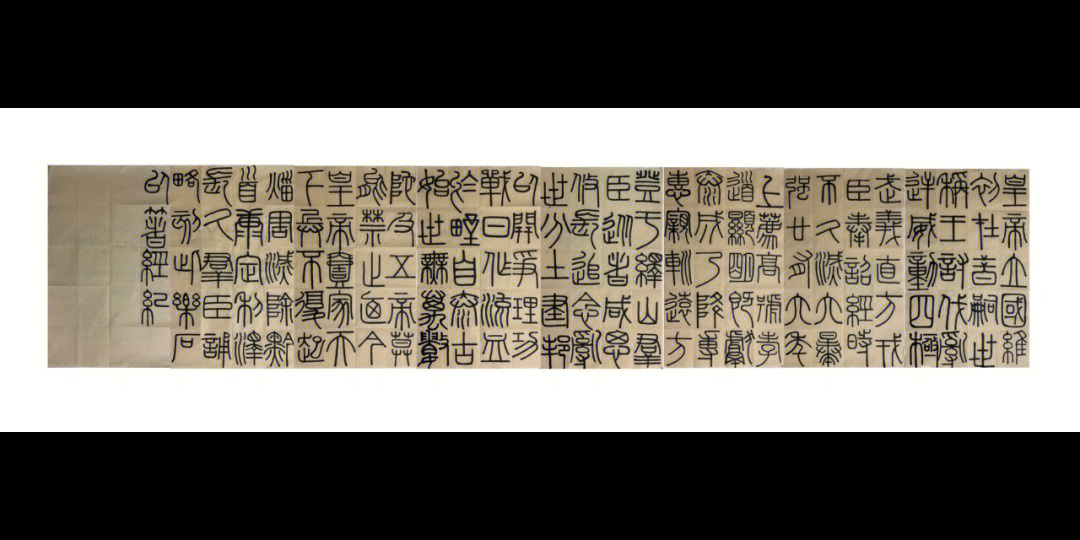 皇帝立國維
初在昔嗣世
稱王討伐亂
逆威動四極
武義直方戎
臣奉詔經時
不久滅六暴
強廿有六年
上薦高號孝
道顯明既獻
泰成乃降專
惠親巡遠方
登于繹山群
臣從者咸思
攸長追念亂
世分土建邦
以開爭理功
戰日作流血
於野自泰古
始世無萬數
陀及五帝莫
能禁止迺今
皇帝壹家天
下兵不復起
災害滅除黔
首康定利澤
長久群臣誦
略刻此樂石
以著經紀